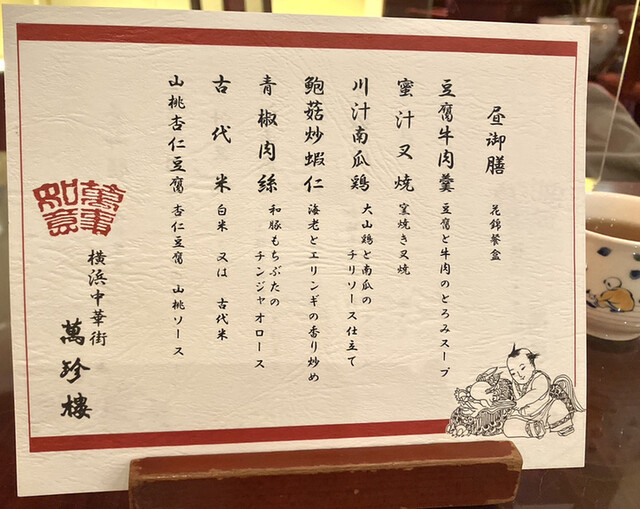 昼御膳 花錦餐盒
豆腐牛肉羹 豆腐と牛肉のとろみスープ
蜜汁叉焼 窯焼き叉焼
川汁南瓜鶏 大山鶏と南瓜の
チリソース仕立て
鮑菇炒蝦仁 海老とエリンギの香り炒め
青椒肉絲 和豚もちぶたの
チンジャオロース
古代米 白米 又は 古代米
山桃杏仁豆腐 杏仁豆腐 山桃ソース
萬事如意
横浜中華街
萬珍樓